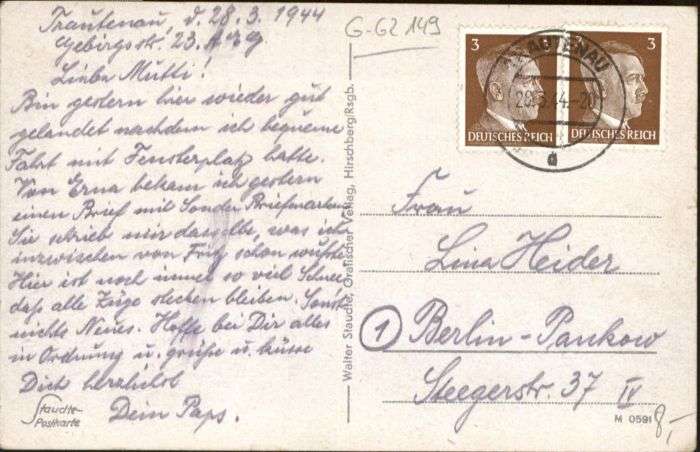 Trautenau, d. 28.3.1944
Gebirgsstr. 23.
Liebe Mutti!
Bin gestern hier wieder gut
gelandet nachdem ich bequeme
Fahrt mit Fensterplatz hatte.
Von Erna bekam ich gestern
einen Brief mit Sonder Briefmarken
Sie schrieb mir dasselbe, was ich
inzwischen von Fritz schon wußte
Hier ist noch immer so viel Schnee
daß alle Züge stecken bleiben. Sonst
nichts Neues. Hoffe bei Dir alles
in Ordnung u. grüße u. küsse
Dich herzlichst
Dein Paps.
Staudte-
Postkarte
Walter Staudte, Grafischer Verlag, Hirschberg/Rsgb.
G-GZ 149
3
DEUTSCHES REICH
3
DEUTSCHES REICH
TRAUTENAU
a
Frau
Lina Heider
1 Berlin-Pankow
Steegerstr. 37 IV
M 0591
8,-